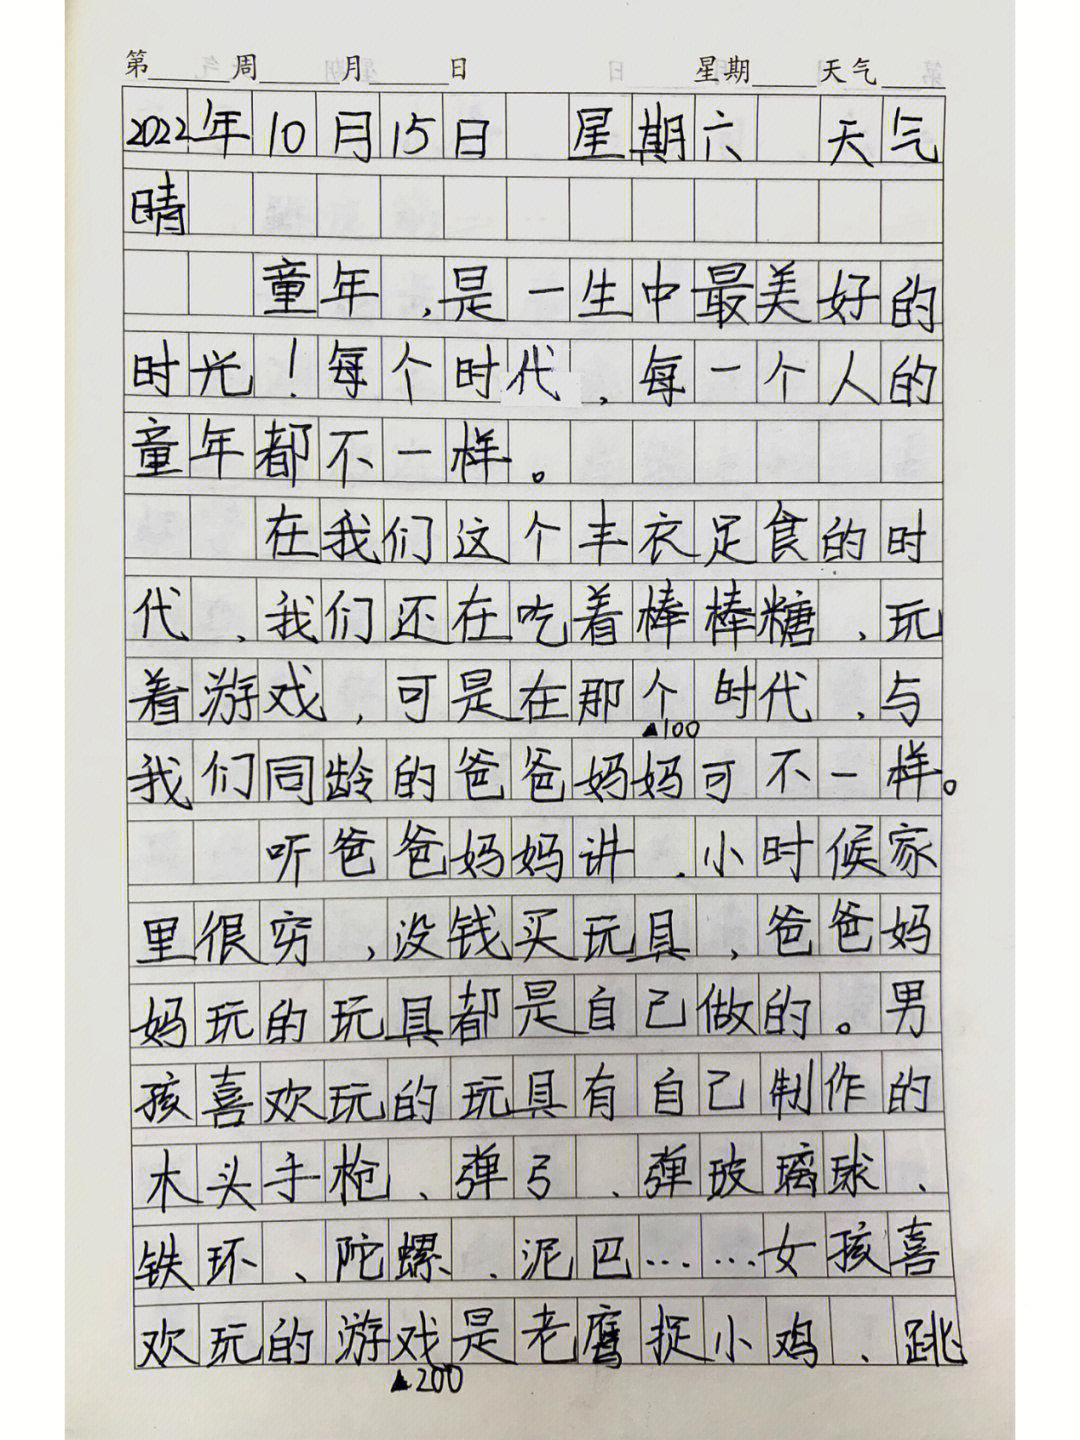 第____周____月____日 星期____天气____
2022年10月15日 星期六 天气
晴
童年，是一生中最美好的
时光！每个时代，每一个人的
童年都不一样。
在我们这个丰衣足食的时
代，我们还在吃着棒棒糖，玩
着游戏，可是在那个时代，与
▲100
我们同龄的爸爸妈妈可不一样。
听爸爸妈妈讲，小时候家
里很穷，没钱买玩具，爸爸妈
妈玩的玩具都是自己做的。男
孩喜欢玩的玩具有自己制作的
木头手枪、弹弓、弹玻璃球、
铁环、陀螺、泥巴……女孩喜
欢玩的游戏是老鹰捉小鸡、跳
▲200